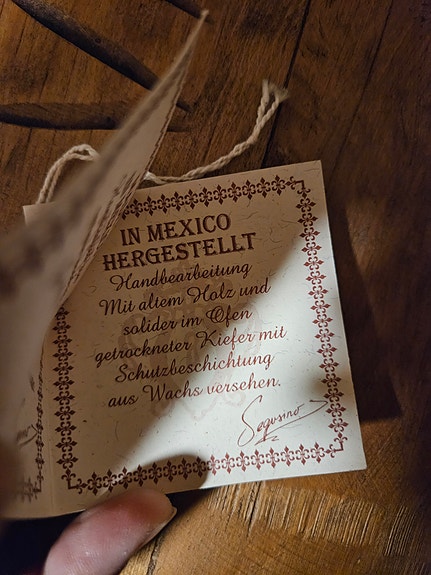 IN MEXICO
HERGESTELLT
Handbearbeitung
Mit altem Holz und
solider im Ofen
getrockneter Kiefer mit
Schutzbeschichtung
aus Wachs versehen.
Segusino